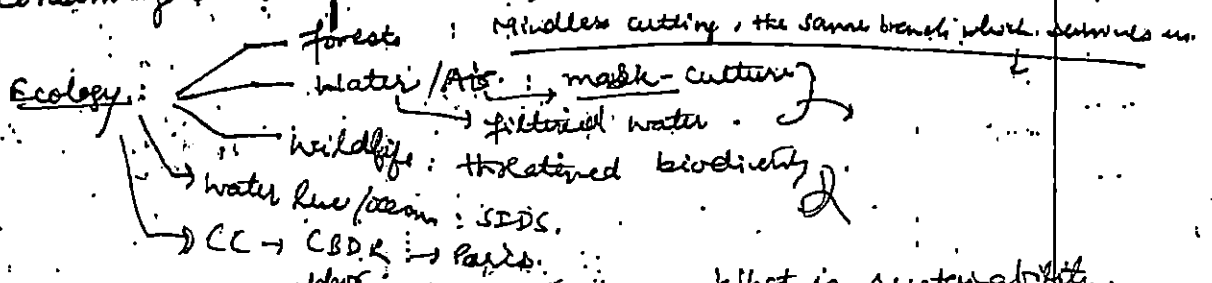 forests : Mindless cutting, the same branch which survives us.
Ecology :
Water/Air : mask-culture
filtered water.
wildlife : threatened biodiversity
water line/ocean : SIDS.
CC → CBDR → Paris.
What is sustainability